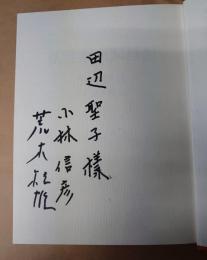 田辺 聖子様
小林信彦
荒木経惟